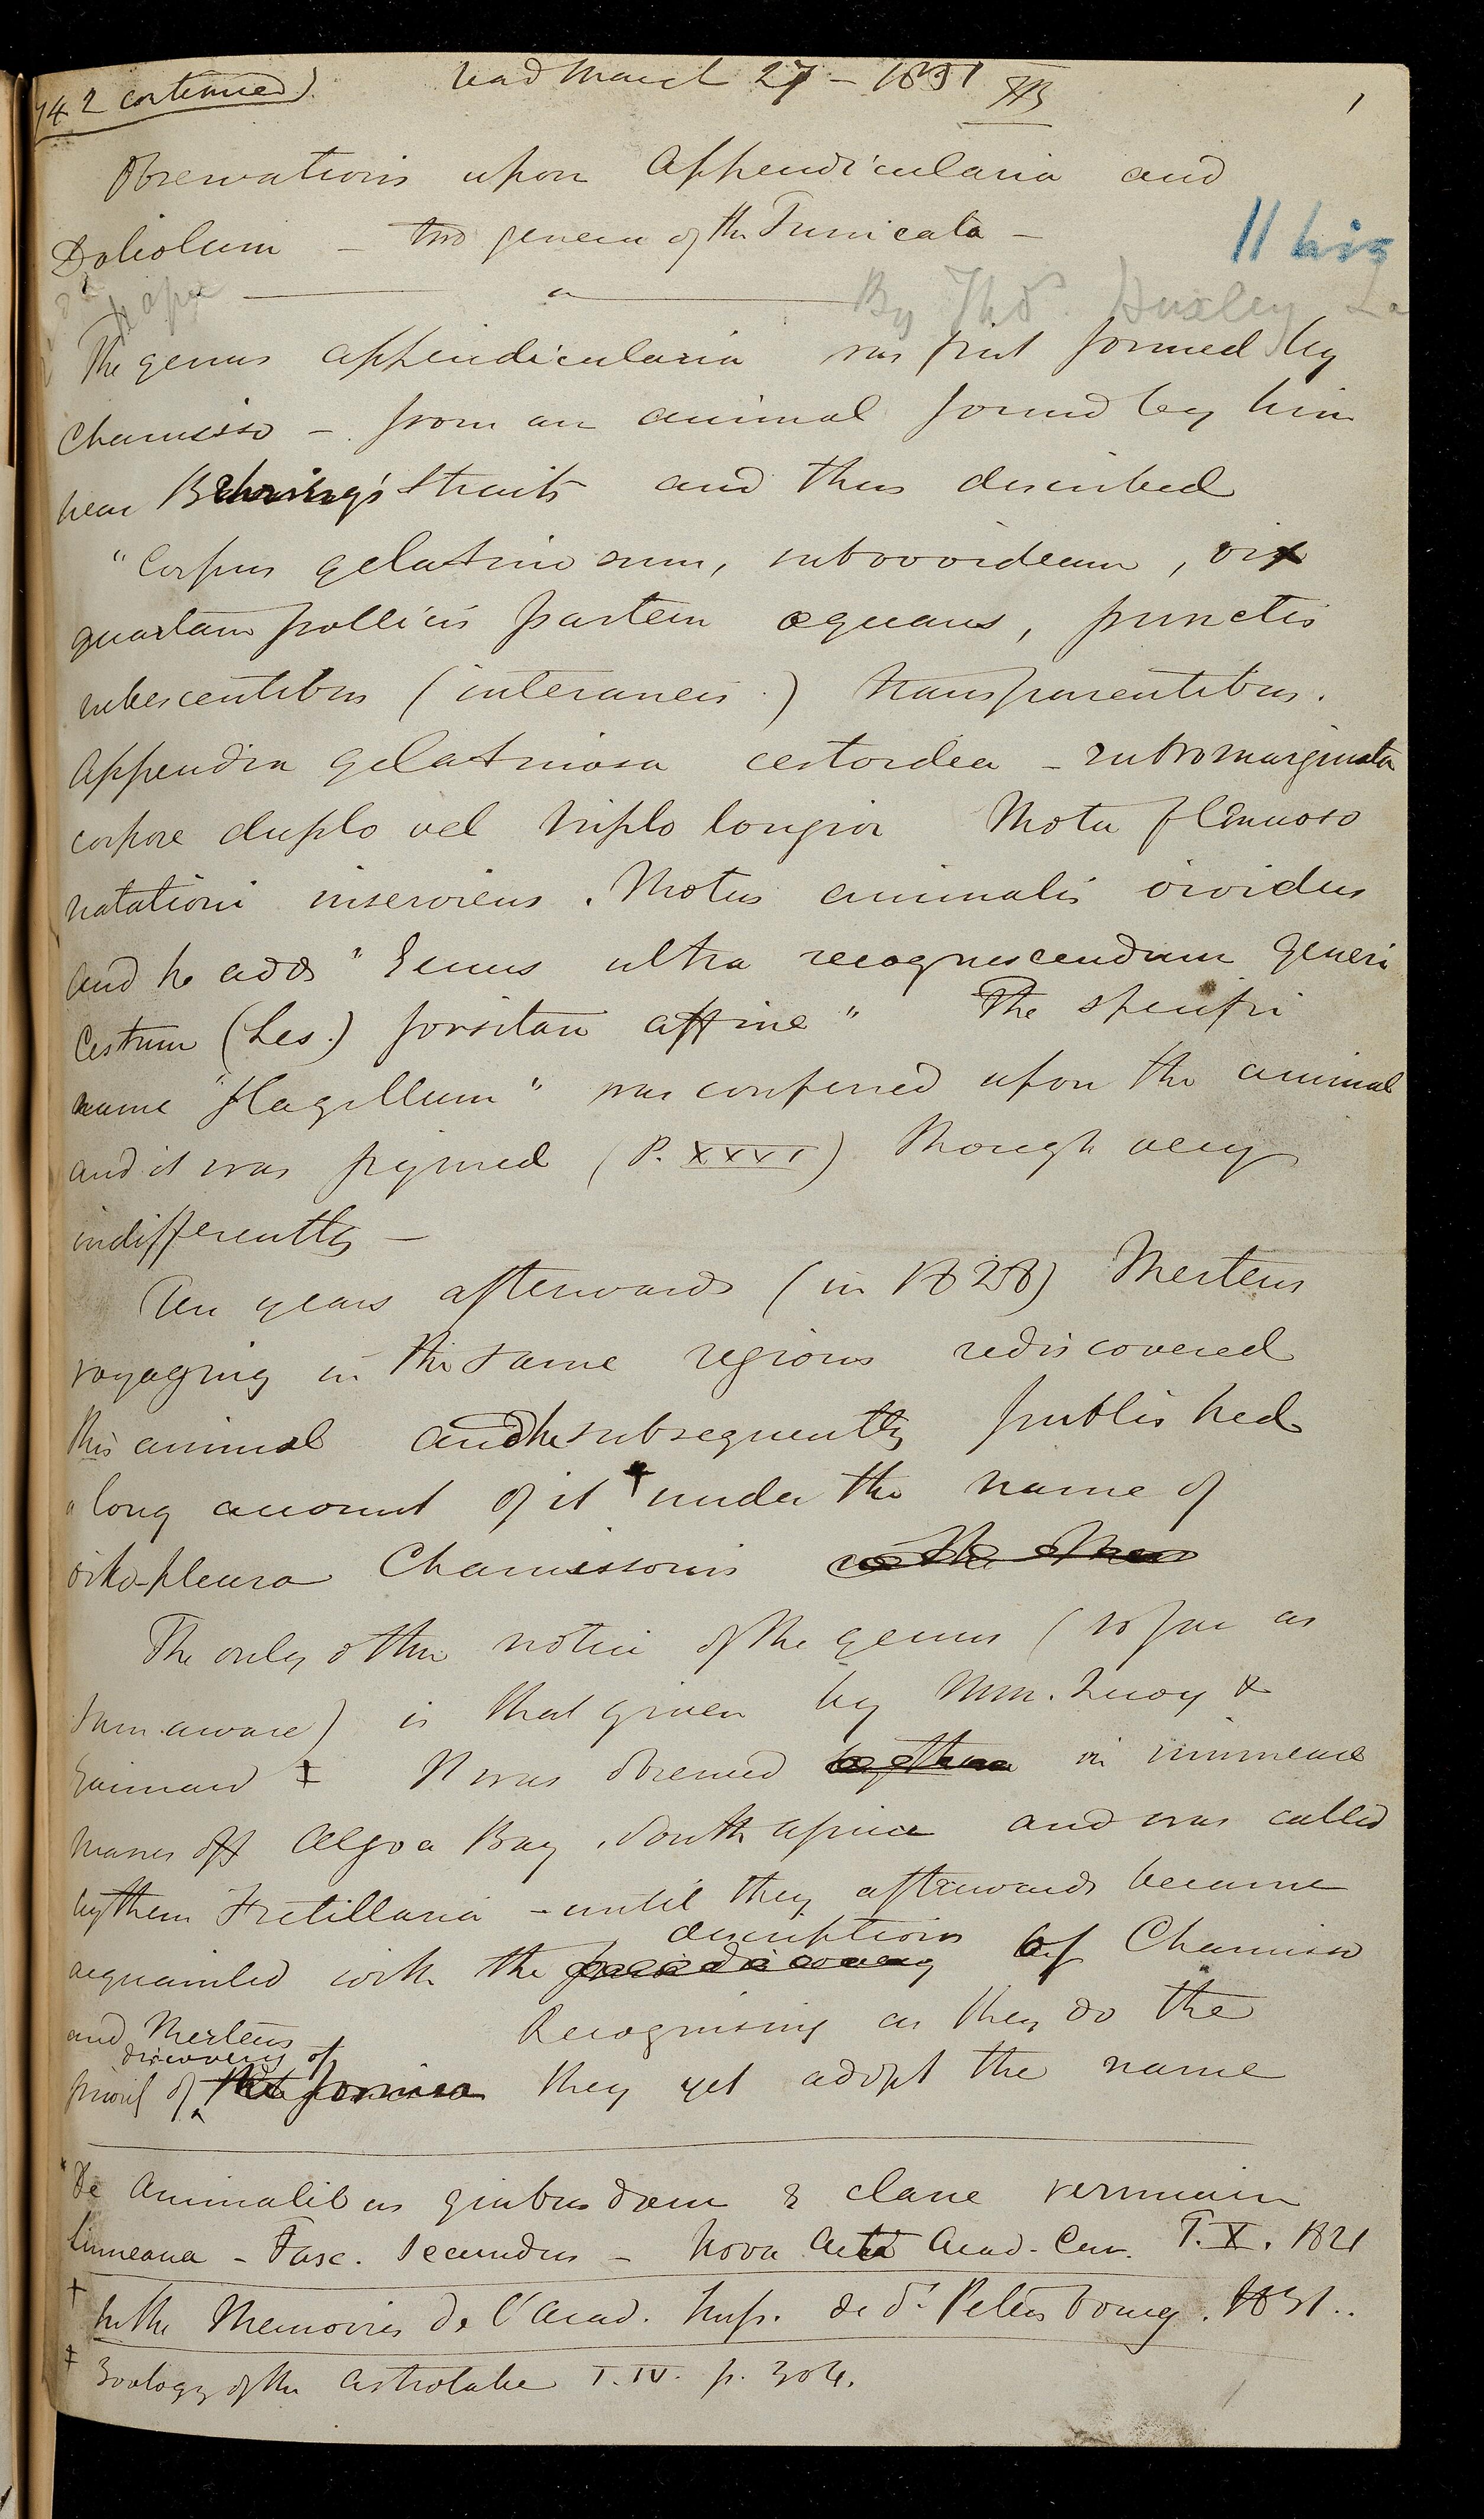 742 continued)
read March 27 - 1851
1
Observations upon Appendicularia and
Doliolum - two genera of the Tunicata -
By Thos. Huxley
The genus appendicularia was first formed by
Chamisso - from an animal found by him
near Behring's Straits and thus described
"Corpus gelatinosum, subovoideum, vix
quartam pollicis partem æquans, punctis
rubescentibus (interaneis.) transparentibus.
Appendix gelatinosa cestoidea - rubromarginata
corpore duplo vel triplo longior Motu flexuoso
natationi inserviens. Motus animalis vividus
and he adds "Genus ultra recognoscendum generi
Cestum (Les.) forsitan affine" The specific
name "flagellum" was conferred upon the animal
and it was figured (P. XXXVI) though very
indifferently -
Ten years afterwards (in 1828) Mertens
voyaging in the same regions rediscovered
this animal and he subsequently published
a long account of it † under the name of
oiko-pleura Chamissonis
The only other notice of the genus (so far as
I am aware) is that given by Mm. Quoy &
Gaimard ‡ It was observed in immense
masses off Algoa Bay, South Africa and was called
by them Fretillaria - until they afterwards became
descriptions
acquainted with the of Chamisso
and Mertens Recognising as they do the
discovery of
priority of the former they yet adopt the name
* De Animalibus quibusdam e classe vermium
Linneana - Fasc. Secundus - Nova Acta Acad. Cur. T. X. 1821
† In the Memoires de l'Acad. Imp. de St. Petersbourg. 1831..
‡ Zoology of the Astrolabe T. IV. p. 304.